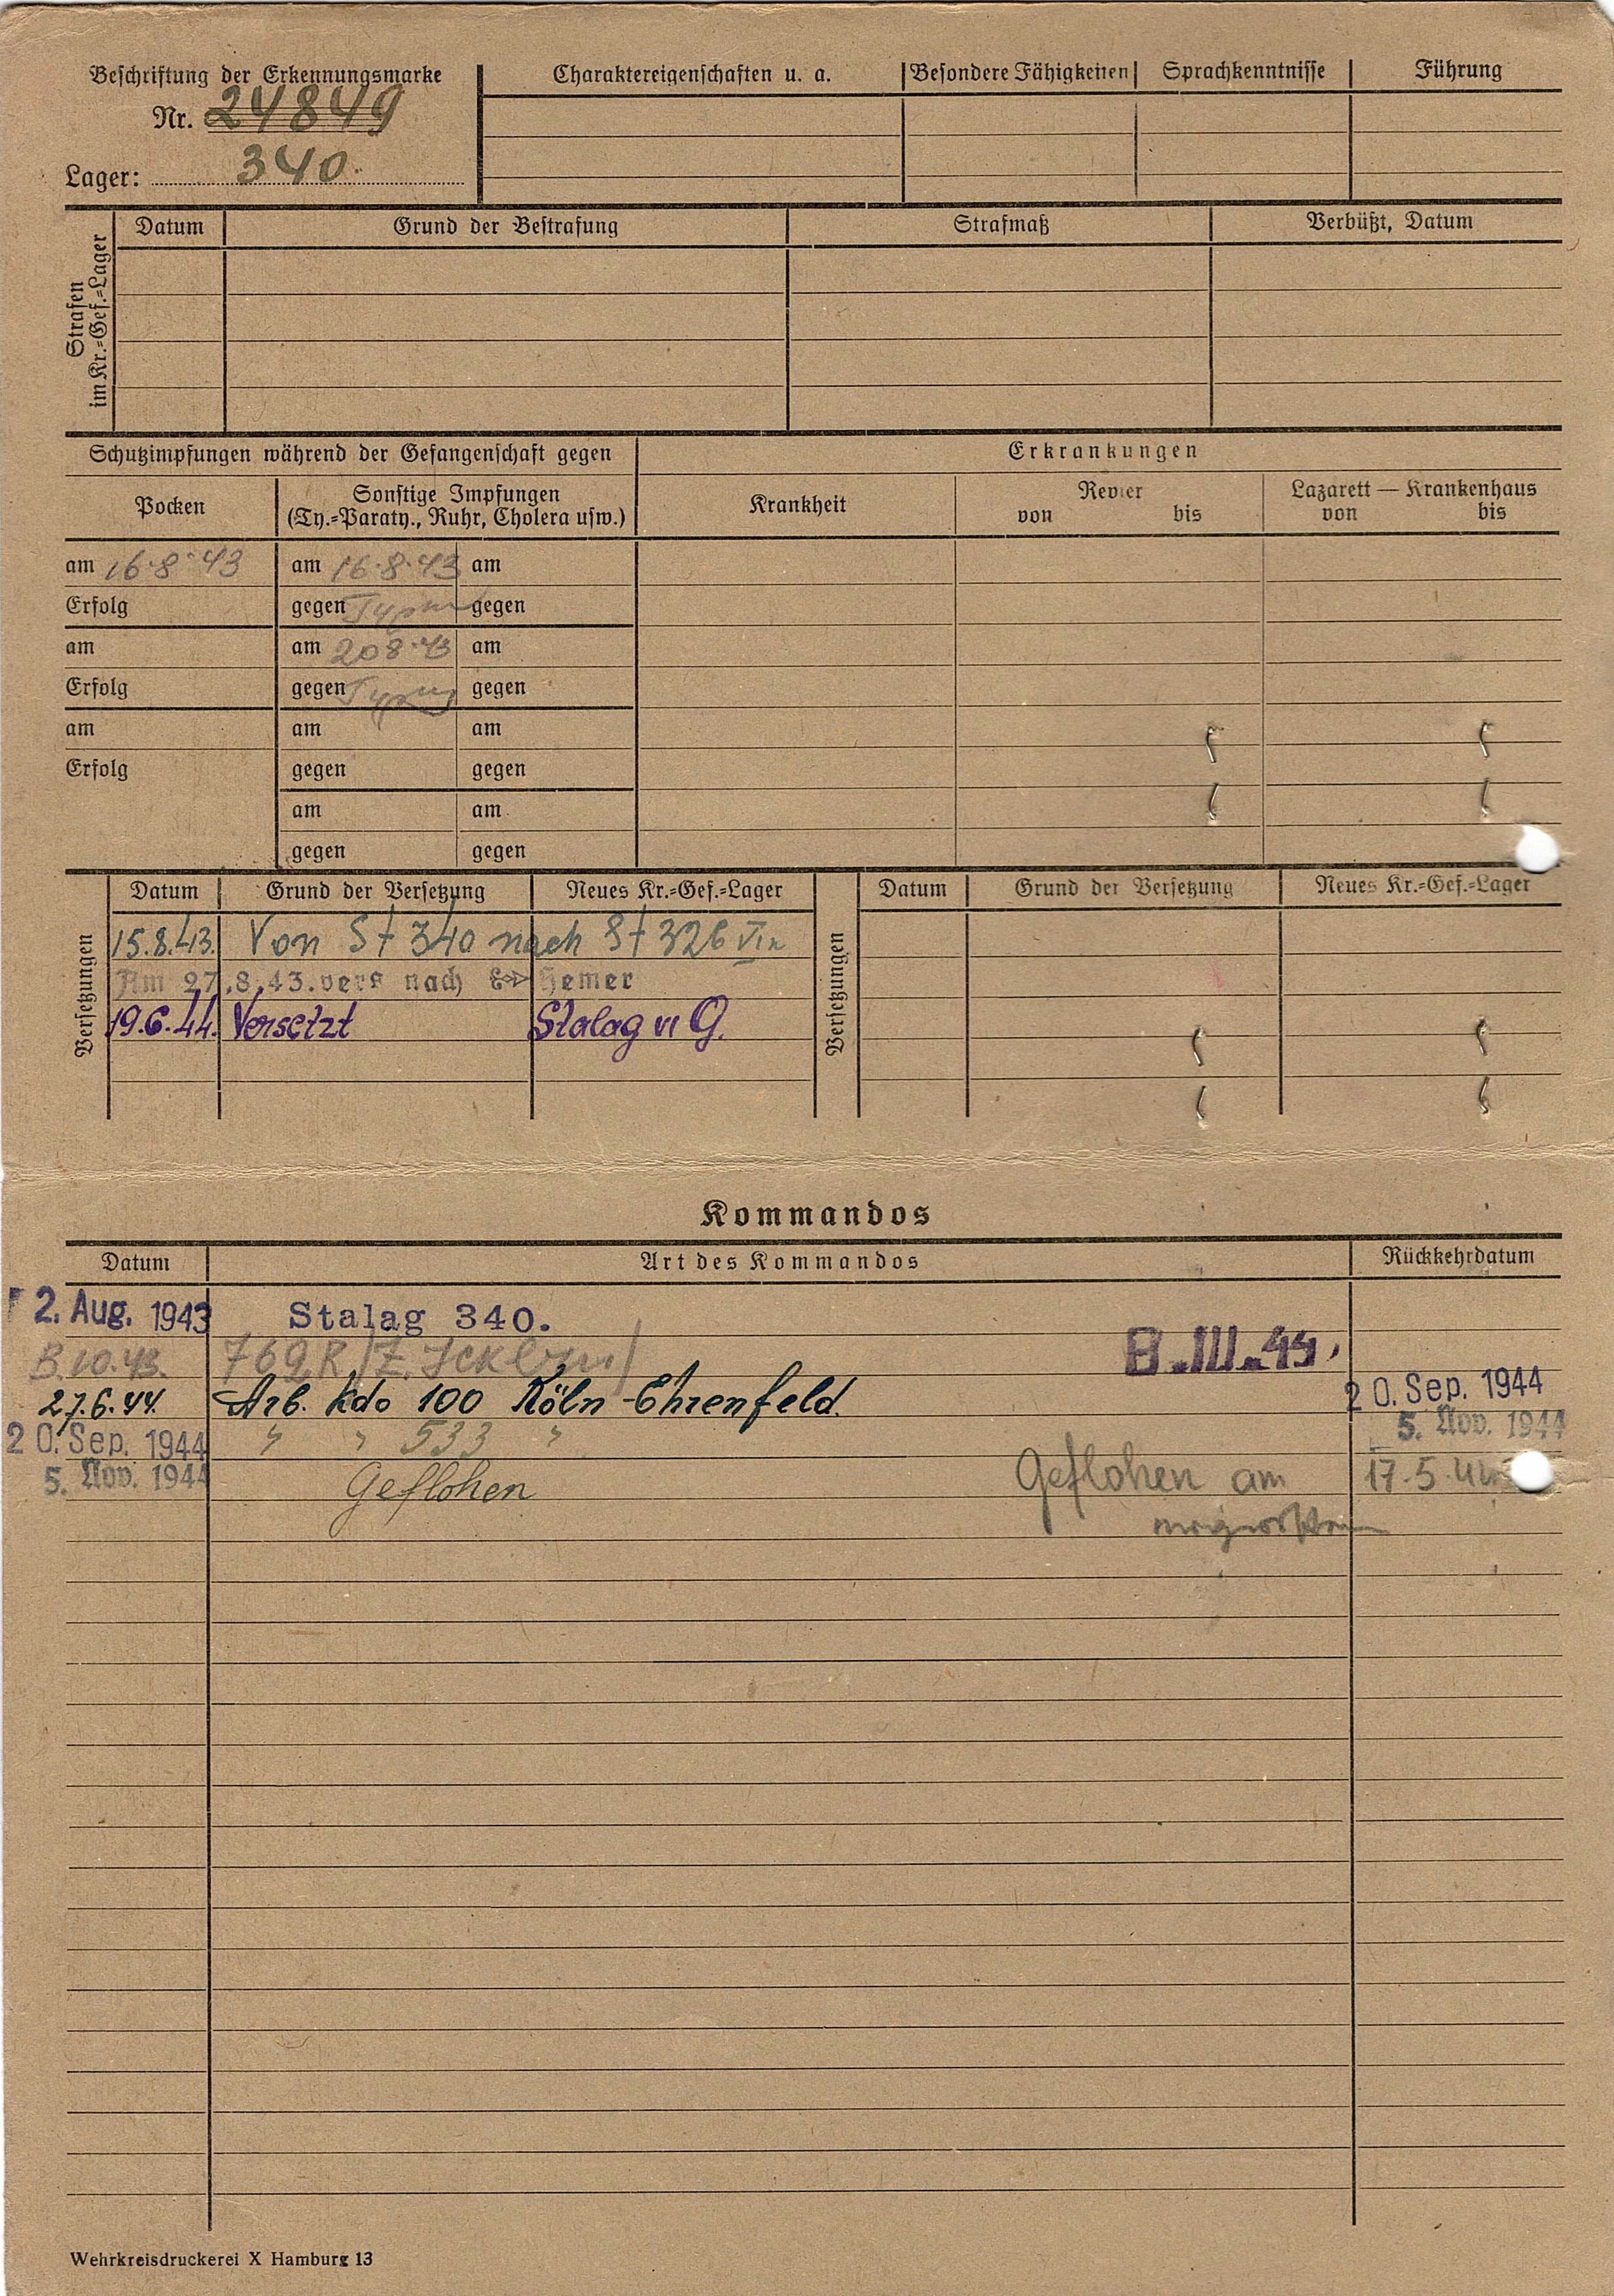 Beschriftung der Erkennungsmarke
Nr. 24849
Lager: 340.
Charaktereigenschaften u. a.
Besondere Fähigkeiten
Sprachkenntnisse
Führung
Strafen
im Kr.=Gef.=Lager
Datum
Grund der Bestrafung
Strafmaß
Verbüßt, Datum
Schutzimpfungen während der Gefangenschaft gegen
Erkrankungen
Pocken
Sonstige Impfungen
(Ty.=Paraty., Ruhr, Cholera usw.)
Krankheit
Revier
von bis
Lazarett — Krankenhaus
von bis
am 16·8·43 am 16·8·43 am
Erfolg gegen gegen
am am 20 8·43 am
Erfolg gegen Typus gegen
am am am
Erfolg gegen gegen
am am
gegen gegen
Versetzungen
Datum Grund der Versetzung Neues Kr.=Gef.=Lager
15.8.43. Von St 340 nach St 326
Am 27.8.43. vers nach Hemer
19.6.44. Versetzt Stalag VI G.
Versetzungen
Datum Grund der Versetzung Neues Kr.=Gef.=Lager
Kommandos
Datum Art des Kommandos Rückkehrdatum
2. Aug. 1943 Stalag 340.
10.43. 769 R 8.III.44.
27.6.44. Arb. Kdo 100 Köln-Ehrenfeld. 20. Sep. 1944
20. Sep. 1944 " " 533 " 5. Nov. 1944
5. Nov. 1944 Geflohen Geflohen am 17.5.44
Wehrkreisdruckerei X Hamburg 13